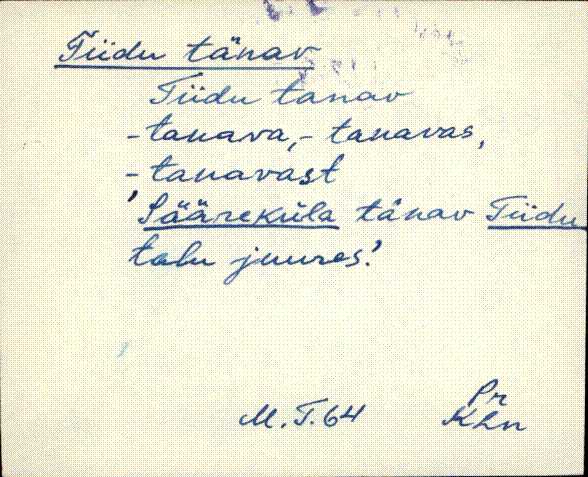 Tiidu tänav
Tiidu tanav
-tanava,- tanavas,
-tanavast
'Sääreküla tänav Tiidu
talu juures.'
M.T.64
Pr
Khn